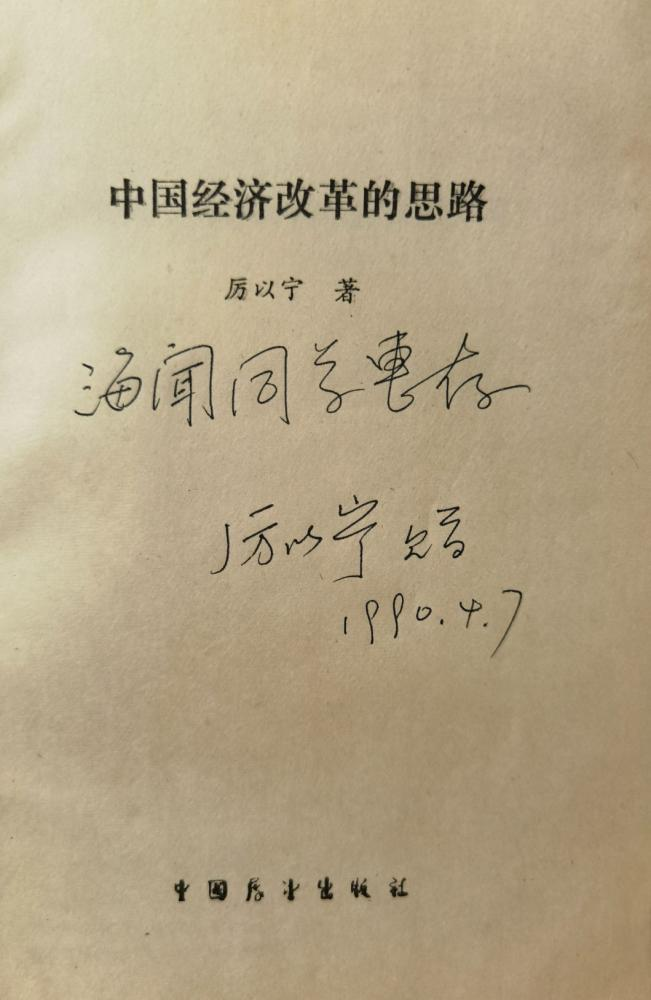 中国经济改革的思路
厉以宁 著
海闻同学惠存
厉以宁 赠
1990.4.7
中国展望出版社